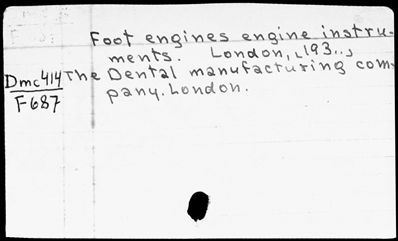 Foot engines engine instru-
ments. London, [193..]
Dmc414 The Dental manufacturing com-
F687 pany. London.